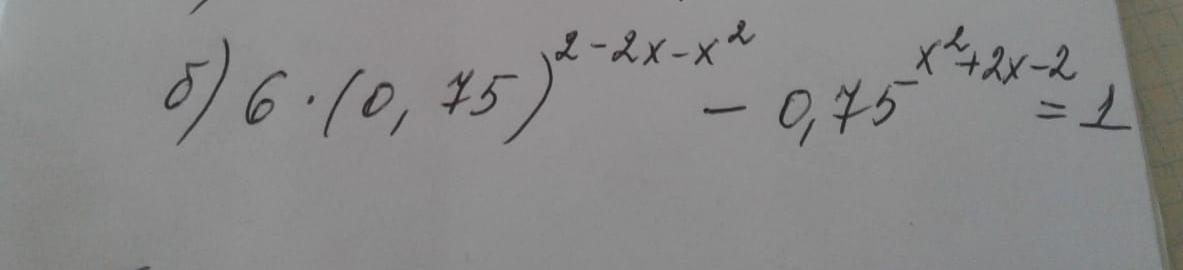 б) 6·(0,75)^{2-2x-x^2} - 0,75^{x^2+2x-2} = 1